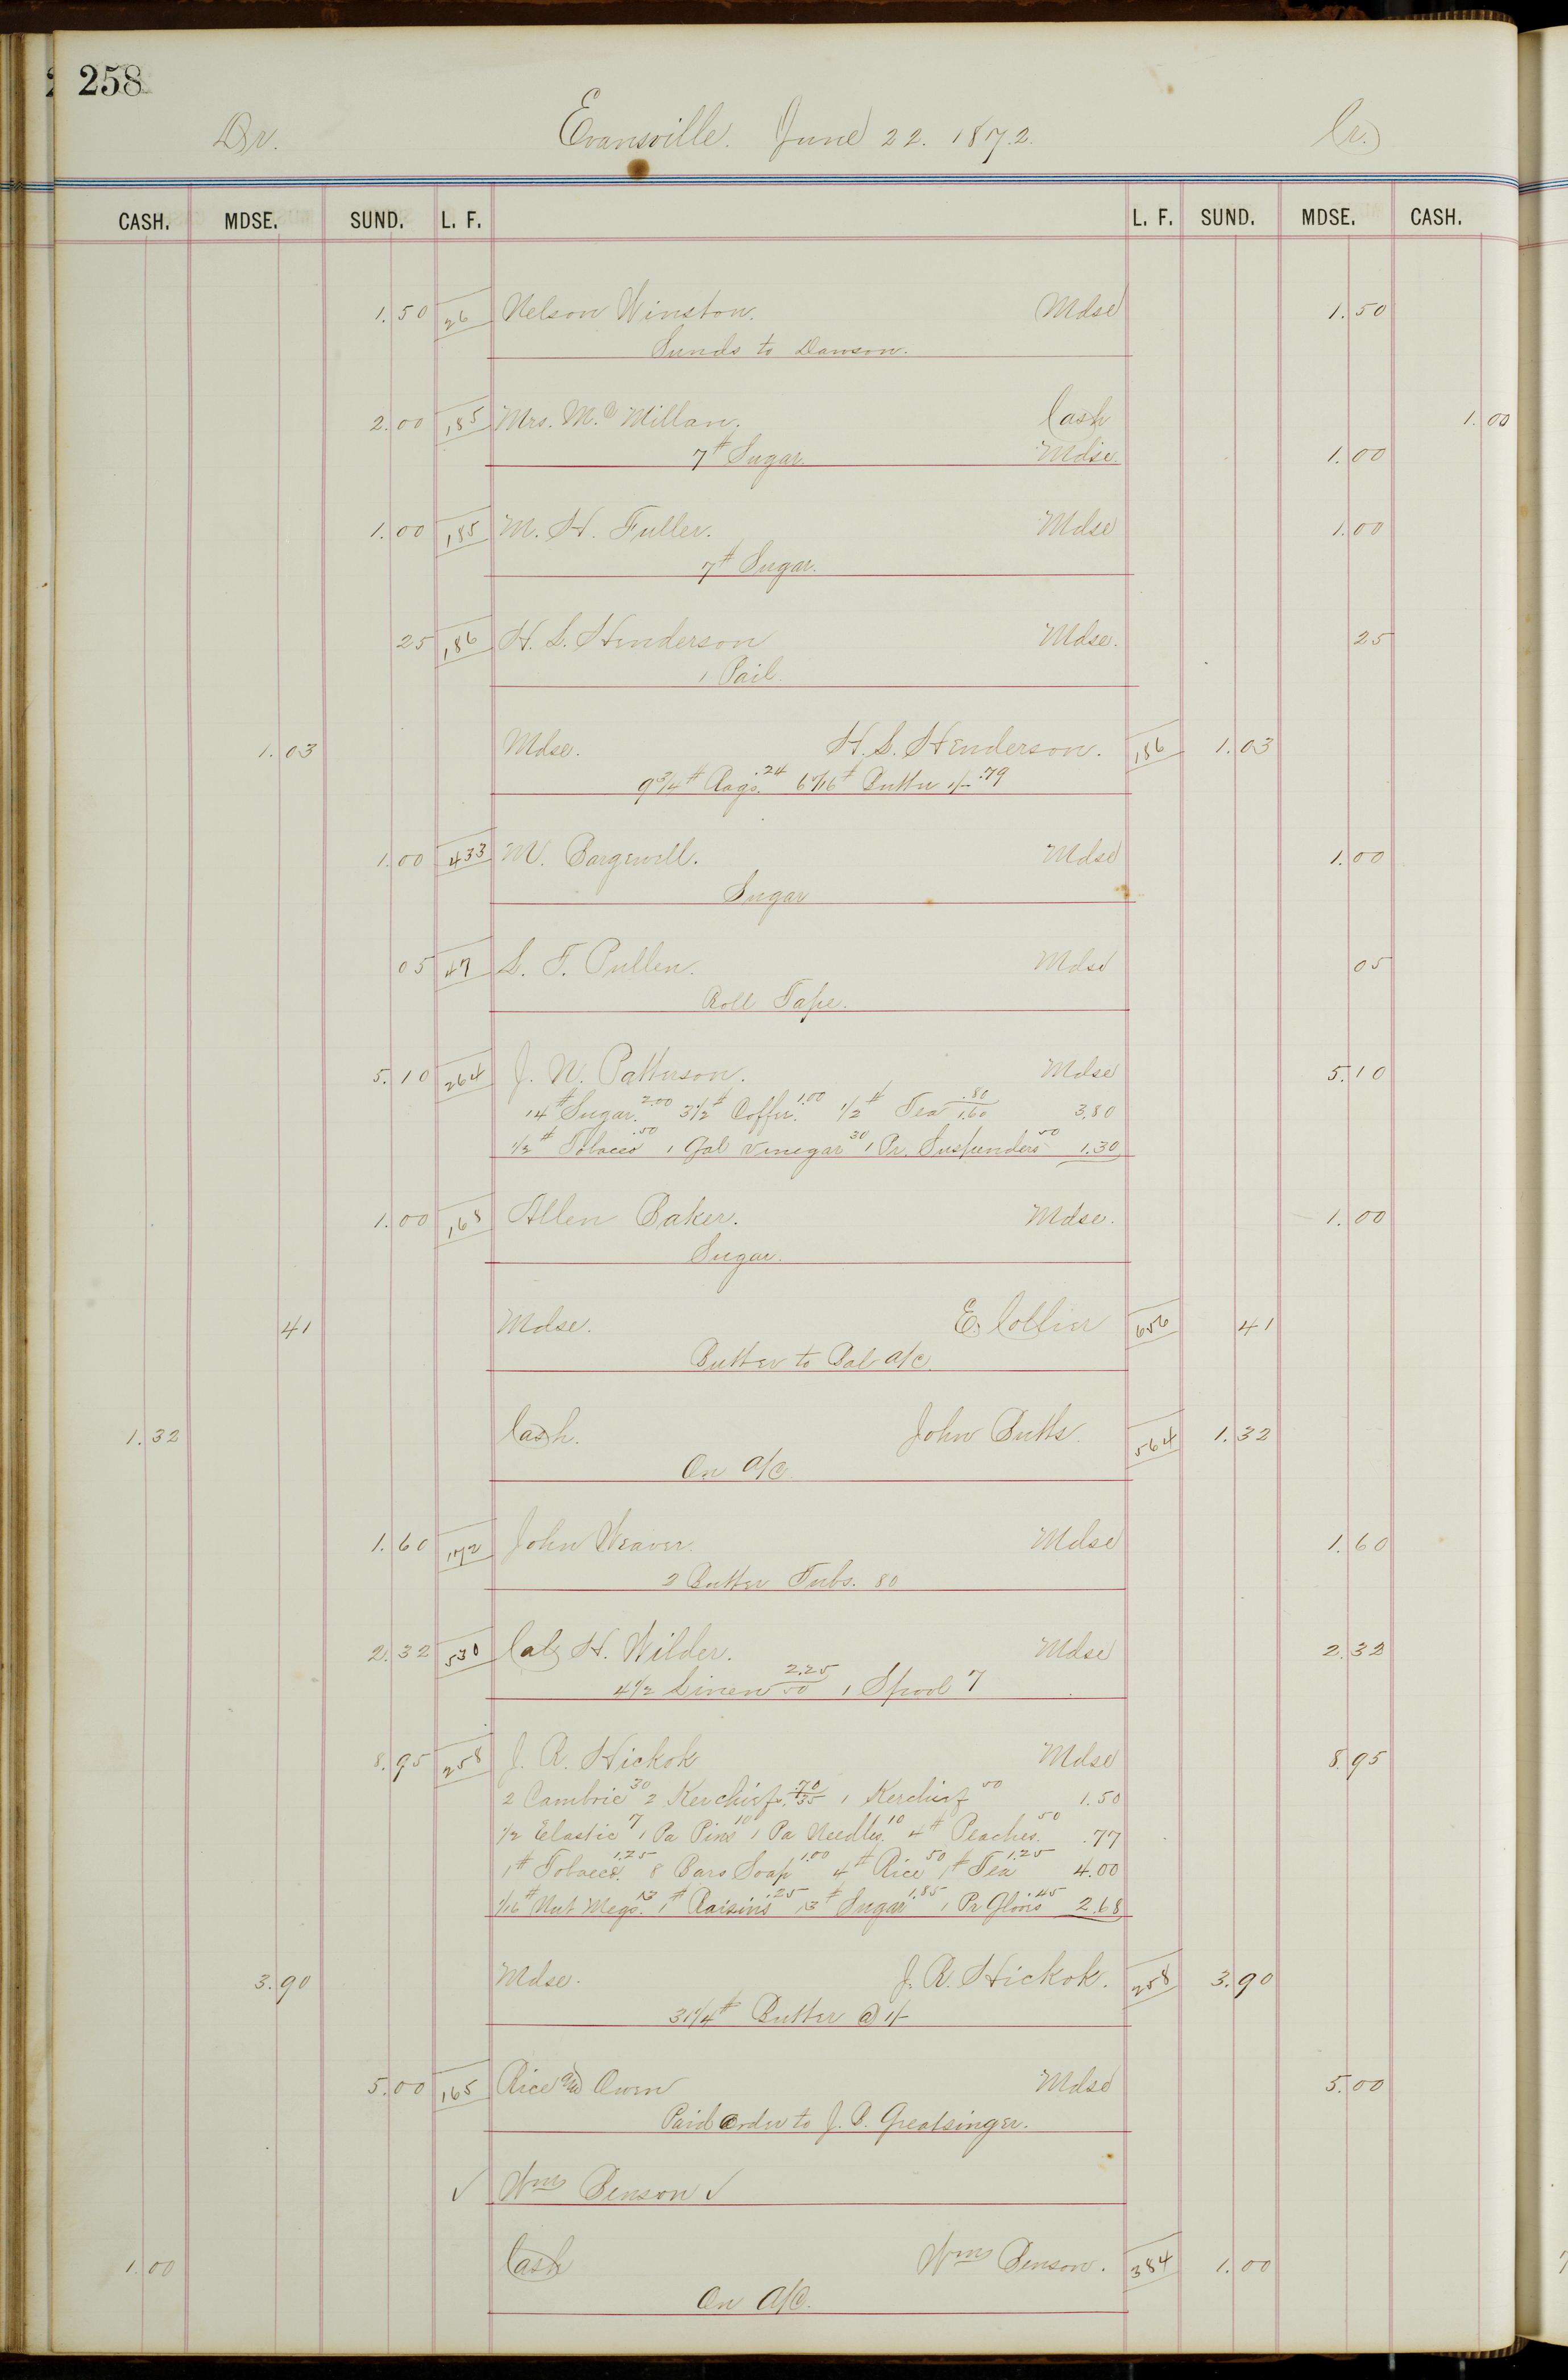 258
Dr. Evansville. June 22. 1872. Cr.
CASH. MDSE. SUND. L. F. L. F. SUND. MDSE. CASH.
1.50 26 Nelson Winston. Mdse 1.50
Sunds to Dawson.
2.00 185 Mrs. Mc Millan. Cash 1.00
7# Sugar. Mdse. 1.00
1.00 185 M. H. Fuller. Mdse 1.00
7# Sugar.
25 186 H. L. Henderson Mdse. 25
1 Pail.
1.03 Mdse. H. L. Henderson. 186 1.03
9 3/4# Rags. .24 Butter 1/- .79
1.00 433 M. Bargewell. Mdse 1.00
Sugar
05 47 L. F. Pullen. Mdse 05
Roll Tape.
5.10 264 J. N. Patterson. Mdse 5.10
14# Sugar. 2.00 3 1/2# Coffee. 1.00 1/2# Tea .80 1.60 3.80
1/2# Tobacco .50 1 Gal Vinegar 30 1 Pr. Suspenders 50 1.30
1.00 168 Allen Baker. Mdse. 1.00
Sugar.
41 Mdse. E. Collin 656 41
Butter to Bal a/c.
1.32 Cash. John Butts. 564 1.32
On a/c.
1.60 172 John Weaver. Mdse 1.60
2 Butter Tubs. 80
2.32 530 Cal H. Wilder. Mdse 2.32
4 1/2 Linen 2.25 50 1 Spool 7
8.95 258 J. R. Hickok Mdse 8.95
2 Cambric 30 2 Kerchiefs .70 .35 1 Kerchief 50 1.50
1/2 Elastic 7 1 Pa Pins 10 1 Pa Needles. 10 4# Peaches. 50 .77
1# Tobacco. 1.25 8 Bars Soap 1.00 4# Rice 50 1# Tea 1.25 4.00
1/16# Nut Megs. 13 1# Raisins .25 13# Sugar 1.85 1 Pr Gloves .45 2.68
3.90 Mdse. J. R. Hickok. 258 3.90
31 1/4# Butter @ 1/-
5.00 165 Rice and Owen Mdse 5.00
Paid Order to J. B. Greatsinger.
✓ Wm Benson ✓
1.00 Cash Wm Benson. 384 1.00
On A/C.